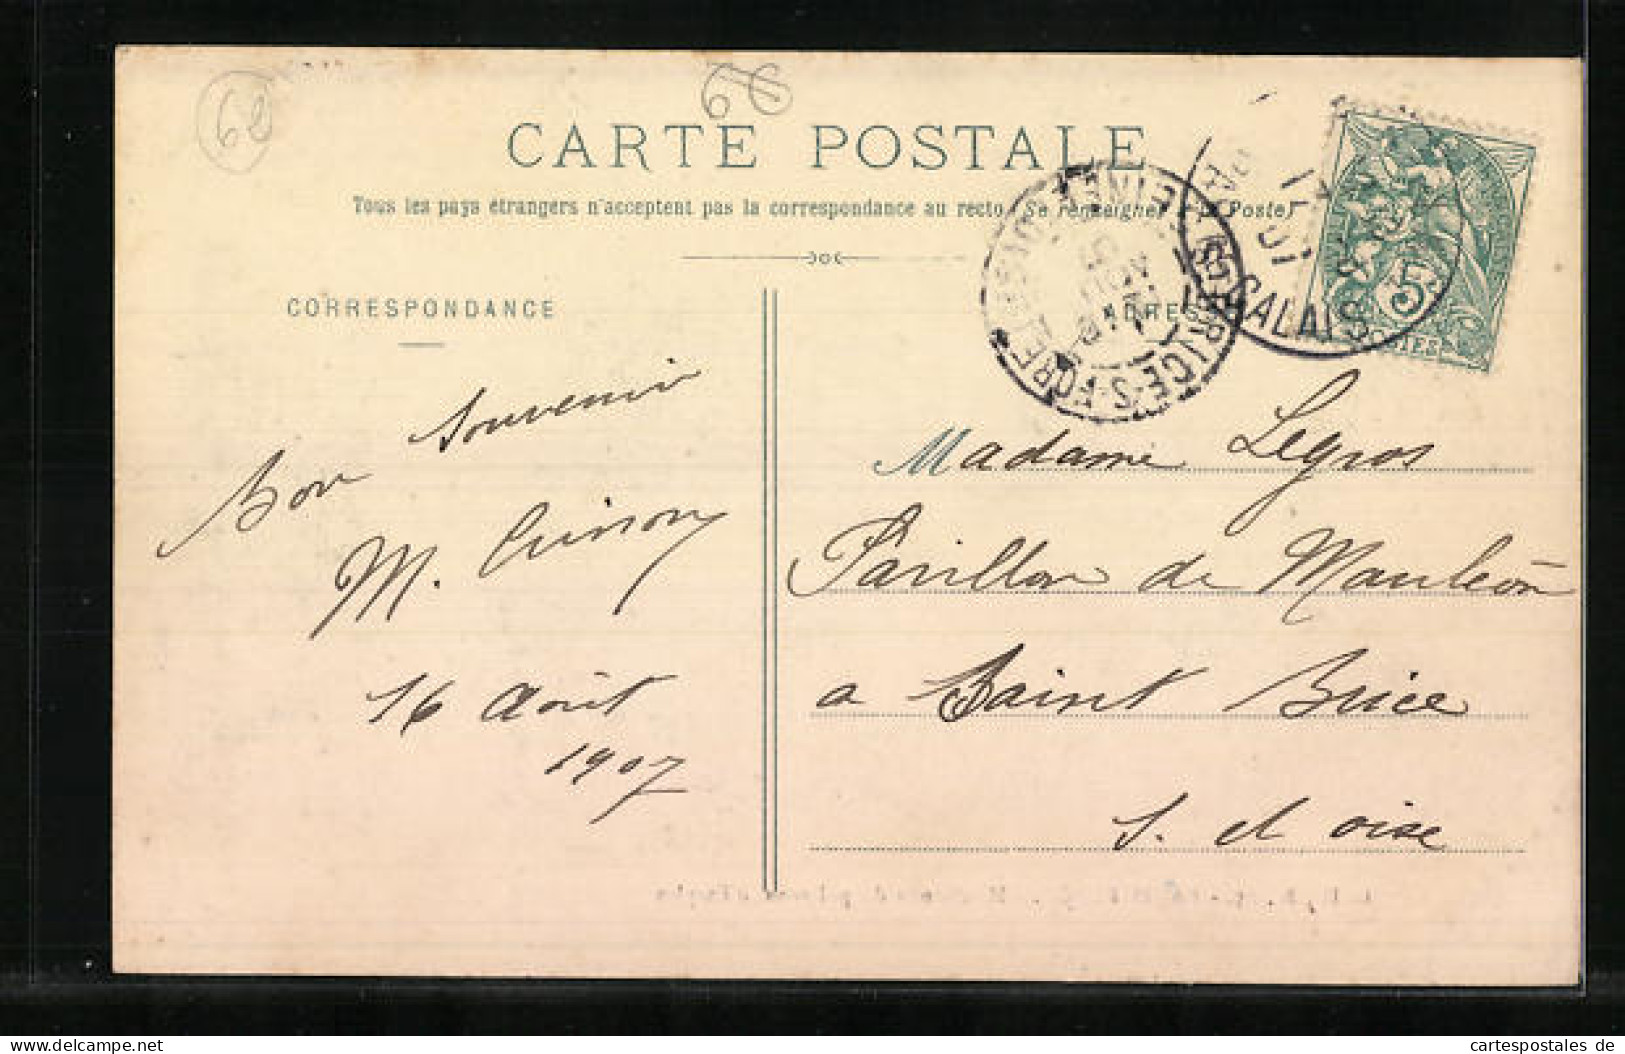 62
CARTE POSTALE
Tous les pays étrangers n'acceptent pas la correspondance au recto (Se renseigner à la Poste)
CORRESPONDANCE
ADRESSE
CALAIS
5
Bon Souvenir
M.
16 Août
1907
Madame Legros
Pavillon de Mauléon
a Saint Brice
S. et oise
www.delcampe.net
cartespostales de